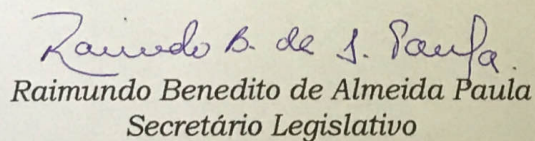 Raimundo B. de A. Paula
Raimundo Benedito de Almeida Paula
Secretário Legislativo